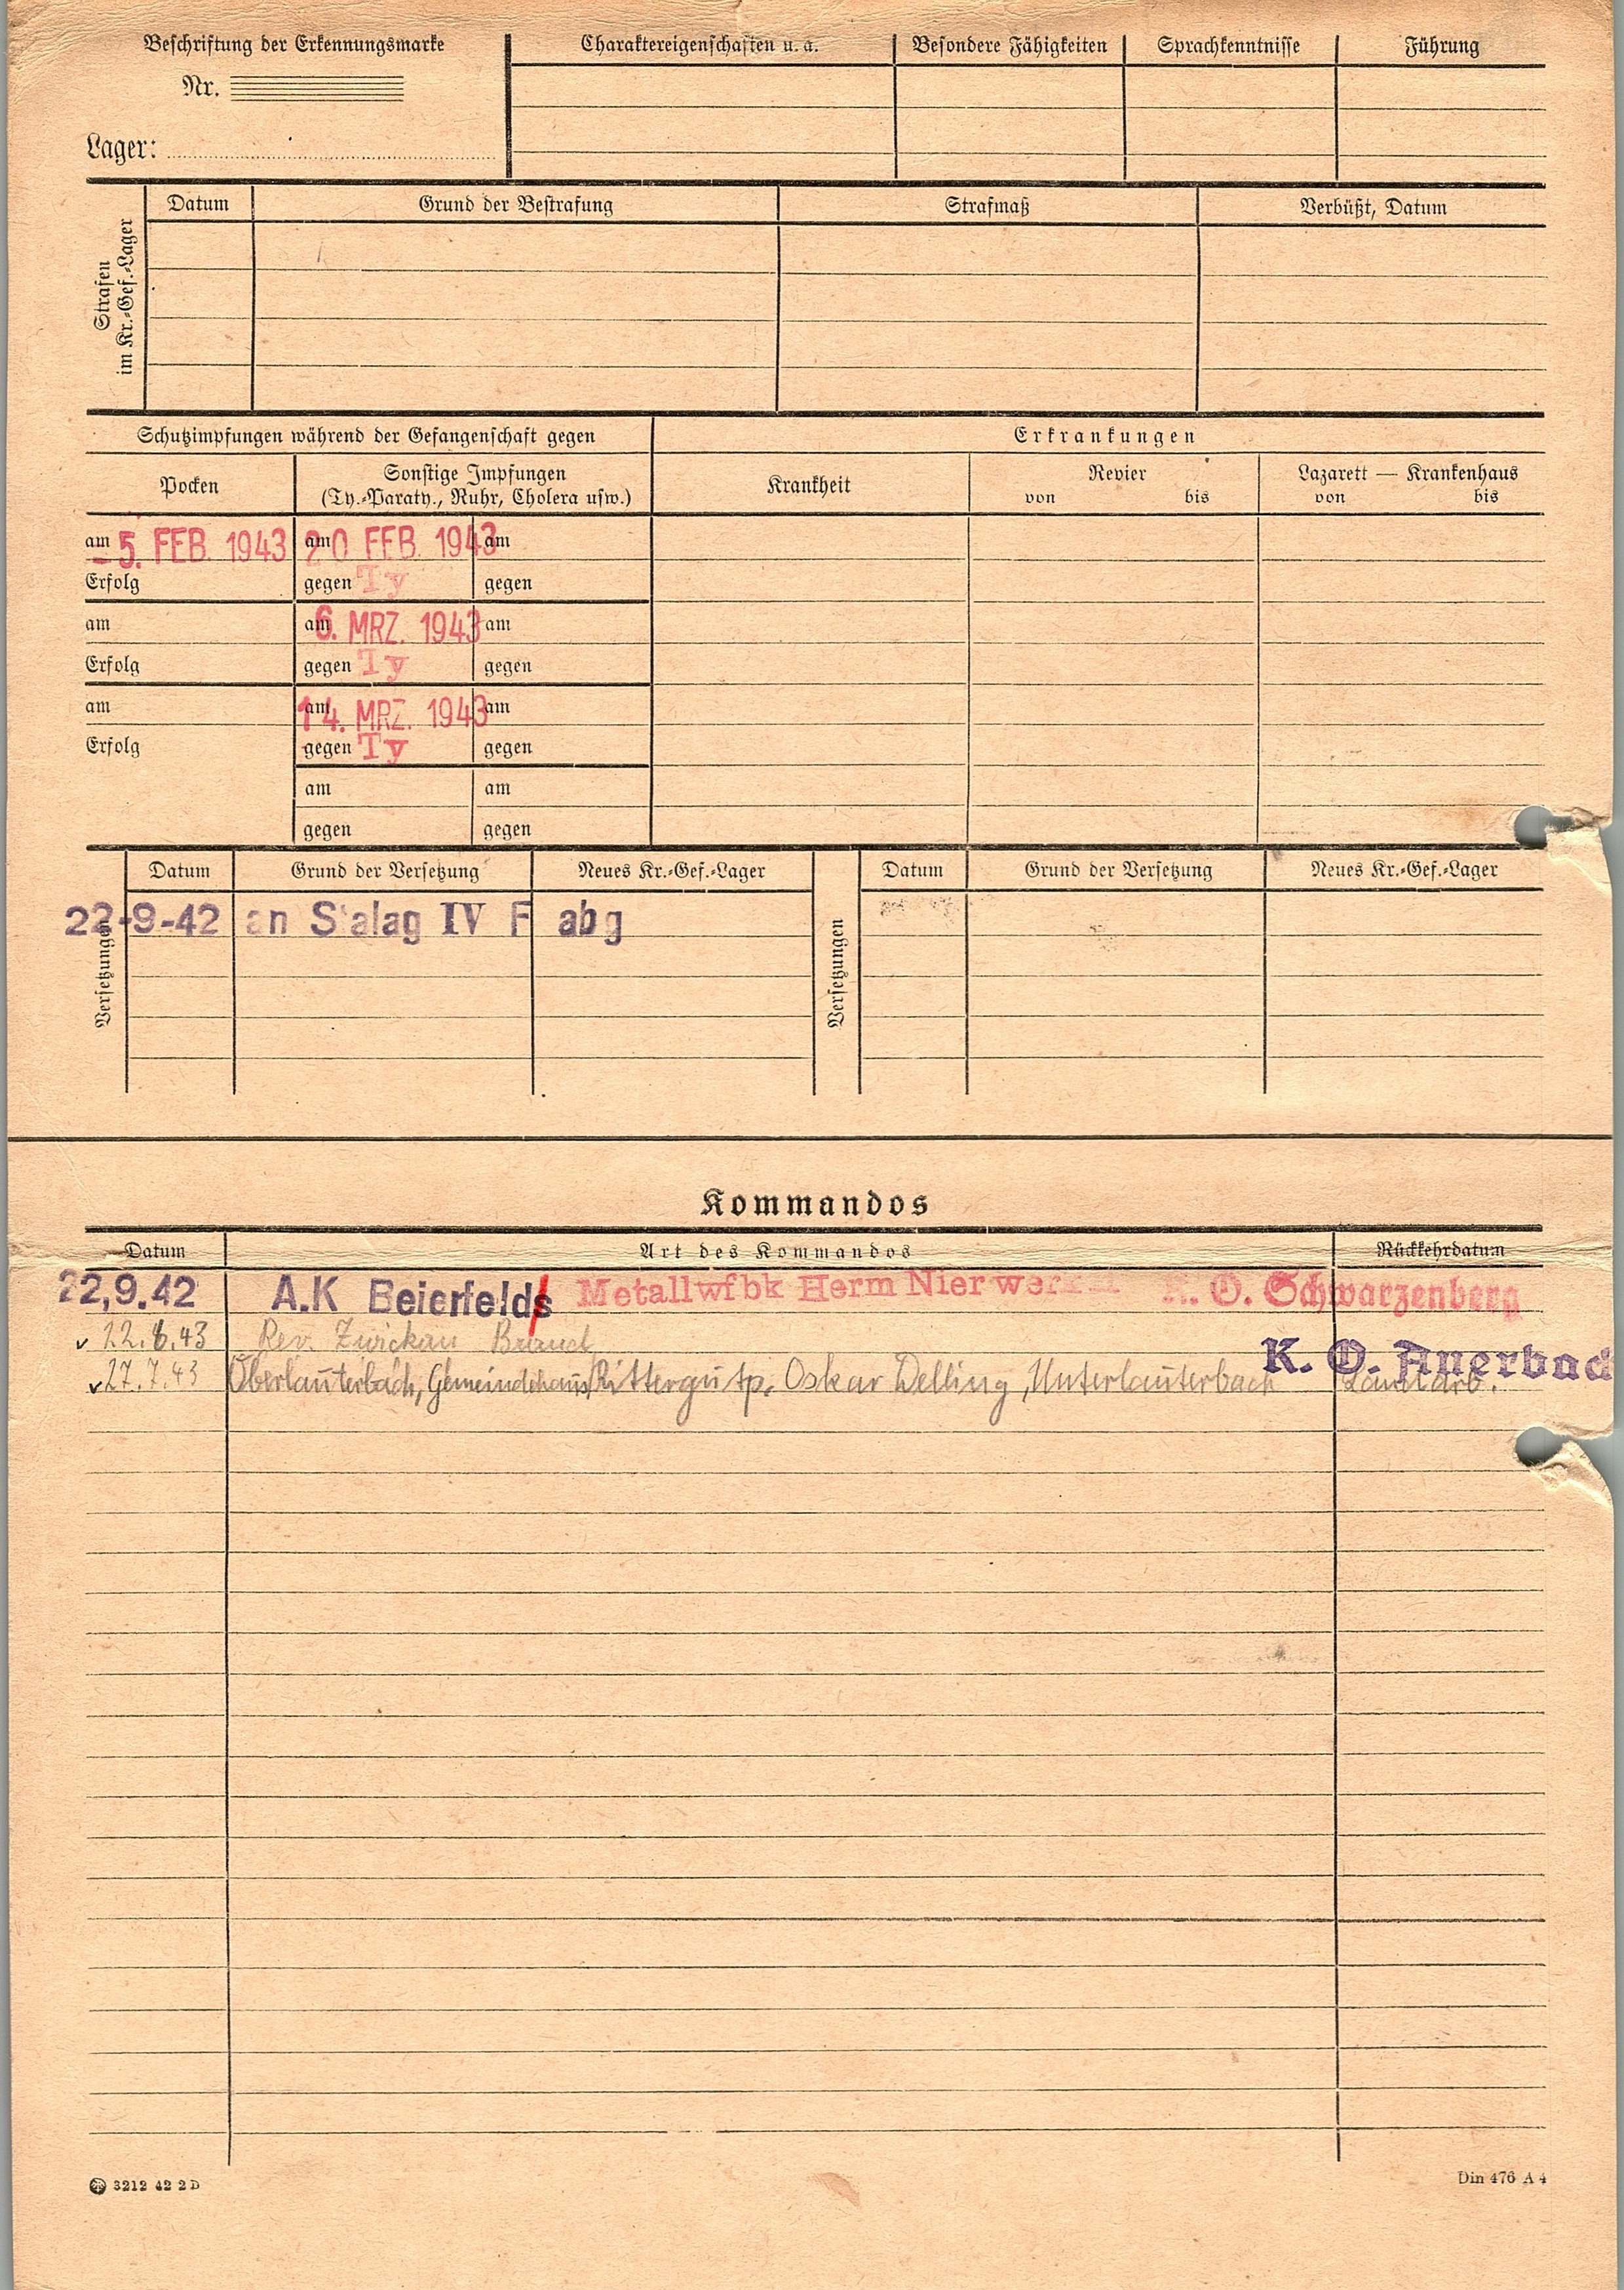 Beschriftung der Erkennungsmarke
Nr.
Lager:
Charaktereigenschaften u. a.
Besondere Fähigkeiten
Sprachkenntnisse
Führung
Strafen
im Kr.-Gef.-Lager
Datum
Grund der Bestrafung
Strafmaß
Verbüßt, Datum
Schutzimpfungen während der Gefangenschaft gegen
Erkrankungen
Pocken
Sonstige Impfungen
(Ty.-Paraty., Ruhr, Cholera usw.)
Krankheit
Revier
von bis
Lazarett — Krankenhaus
von bis
am -5. FEB. 1943 am 20 FEB. 1943 am
Erfolg gegen Ty gegen
am am 6. MRZ. 1943 am
Erfolg gegen Ty gegen
am am 14. MRZ. 1943 am
Erfolg gegen Ty gegen
am am
gegen gegen
Versetzungen
Datum Grund der Versetzung Neues Kr.-Gef.-Lager
22-9-42 an Stalag IV F abg
Versetzungen
Datum Grund der Versetzung Neues Kr.-Gef.-Lager
Kommandos
Datum Art des Kommandos Rückkehrdatum
22,9.42 A.K Beierfeld Metallwfbk Herm Nier K. O. Schwarzenberg
v 12.6.43 Rev. Zwickau
K. O. Auerbac
v 27.7.43 Oberlauterbach, Gemeindehaus/Rittergutp. Oskar Delling, Unterlauterbach Landarb.
3212 42 2 D
Din 476 A 4